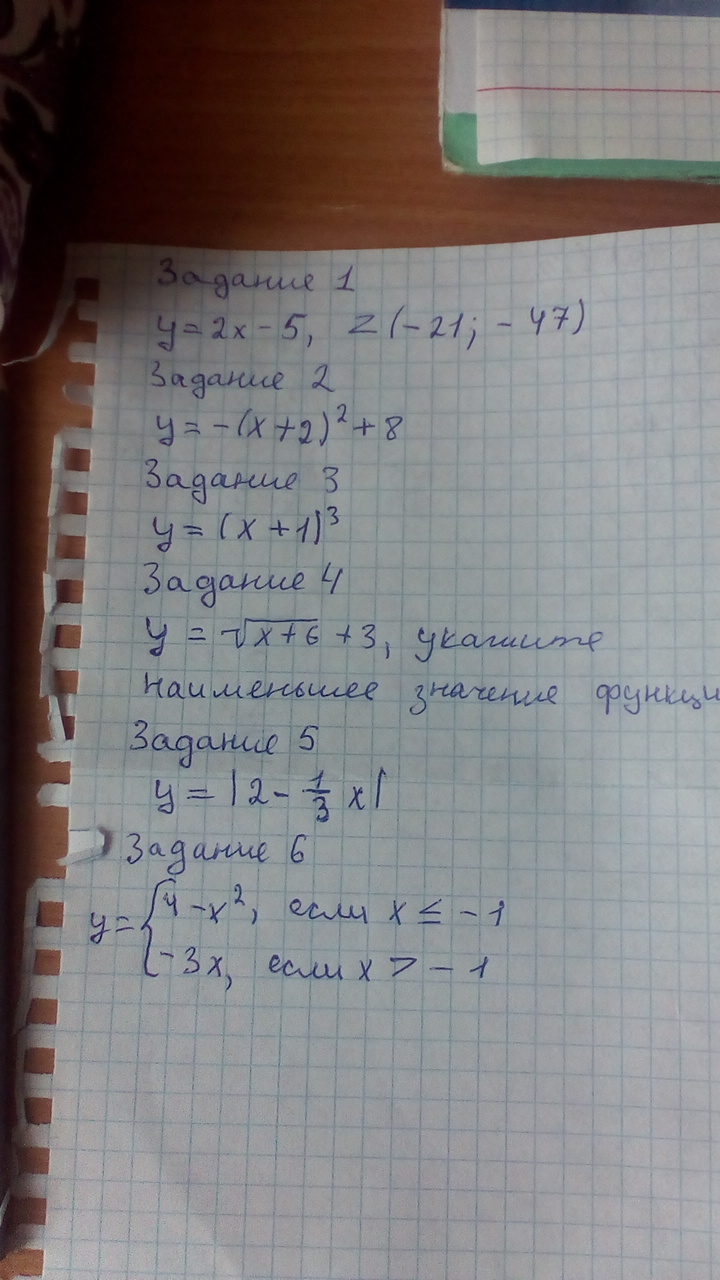 Задание 1
y = 2x - 5, Z (-21; -47)
Задание 2
y = -(x+2)² + 8
Задание 3
y = (x + 1)³
Задание 4
y = √(x+6) + 3, укажите
наименьшее значение функци
Задание 5
y = |2 - 1/3 x|
Задание 6
y = { 4 - x², если x ≤ -1
-3x, если x > -1